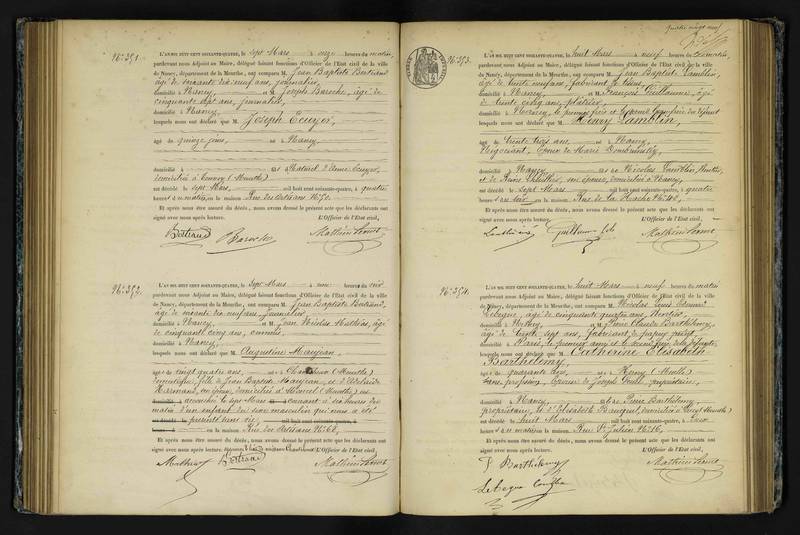 N° 351.
L'AN MIL HUIT CENT SOIXANTE-QUATRE, le sept Mars à onze heures du matin,
pardevant nous Adjoint au Maire, délégué faisant fonctions d'Officier de l'Etat civil de la ville
de Nancy, département de la Meurthe, ont comparu M. Jean Baptiste Bertrand
âgé de soixante dix neuf ans, journalier,
domicilié à Nancy, et M. Joseph Baroche, âgé de
cinquante sept ans, journalier,
domicilié à Nancy
lesquels nous ont déclaré que M. Joseph Ecuyer,
âgé de quinze jours, né à Nancy,
domicilié à et naturel d'Anne Ecuyer,
domiciliée à (Meurthe)
est décédé le sept Mars, mil huit cent soixante-quatre, à quatre
heures du matin, en la maison Rue des Artisans N° 50.
Et après nous être assuré du décès, nous avons dressé le présent acte que les déclarants ont
signé avec nous après lecture. L'Officier de l'Etat civil,
Bertrand Baroche
N° 352.
L'AN MIL HUIT CENT SOIXANTE-QUATRE, le sept Mars à une heure du soir
pardevant nous Adjoint au Maire, délégué faisant fonctions d'Officier de l'Etat civil de la ville
de Nancy, département de la Meurthe, ont comparu M. Jean Baptiste Bertrand,
âgé de soixante dix neuf ans, Journalier,
domicilié à Nancy, et M. Jean Nicolas Mathieu, âgé
de cinquante cinq ans, commis,
domicilié à Nancy,
lesquels nous ont déclaré que M. Augustine Maujean,
âgé de vingt quatre ans, né à (Meurthe)
domestique, fille de Jean Baptiste Maujean, et d'Adélaïde
domiciliés à (Meurthe) est
accouchée le sept Mars courant à six heures du
matin d'un enfant du sexe masculin qui nous a été
présenté sans vie,
Rue des Artisans N° 68,
Et après nous être assuré du décès, nous avons dressé le présent acte que les déclarants ont
signé avec nous après lecture. L'Officier de l'Etat civil,
Mathieu Bertrand
N° 353.
L'AN MIL HUIT CENT SOIXANTE-QUATRE, le huit Mars à neuf heures du matin,
pardevant nous Adjoint au Maire, délégué faisant fonctions d'Officier de l'Etat civil de la ville
de Nancy, département de la Meurthe, ont comparu M. Jean Baptiste Lamblin,
âgé de trente neuf ans, fabricant de tissus,
domicilié à Nancy, et M. François Guillaume, âgé
de trente cinq ans, plâtrier,
domicilié à Nancy, le premier frère et le second beau frère du défunt
lesquels nous ont déclaré que M. Henry Lamblin,
âgé de trente trois ans, né à Nancy,
Négociant, Epoux de Marie
domicilié à Nancy et de Nicolas Lamblin, Rentier,
et de son épouse, domiciliés à Nancy,
est décédé le sept Mars mil huit cent soixante-quatre, à quatre
heures du soir en la maison Rue de la Hache N° 48,
Et après nous être assuré du décès, nous avons dressé le présent acte que les déclarants ont
signé avec nous après lecture. L'Officier de l'Etat civil,
N° 354.
L'AN MIL HUIT CENT SOIXANTE-QUATRE, le huit Mars à neuf heures du matin
pardevant nous Adjoint au Maire, délégué faisant fonctions d'Officier de l'Etat civil de la ville
de Nancy, département de la Meurthe, ont comparu M. Nicolas Louis
Lebègue, âgé de cinquante quatre ans, Rentier,
domicilié à et M. Pierre Claude Barthélemy,
âgé de trente sept ans, fabricant de papier peint,
domicilié à Paris, le premier ami et le second frère de la défunte,
lesquels nous ont déclaré que M. Catherine Elisabeth
Barthélemy,
âgé de quarante ans, né à (Meurthe)
sans profession, Epouse de Joseph propriétaire,
domicilié à Nancy, et de Pierre Barthélemy,
propriétaire, et d'Elisabeth domiciliés à (Meurthe)
est décédé le huit Mars mil huit cent soixante-quatre, à deux
heures du matin en la maison Rue St Julien N° 16,
Et après nous être assuré du décès, nous avons dressé le présent acte que les déclarants ont
signé avec nous après lecture. L'Officier de l'Etat civil,
Barthélemy